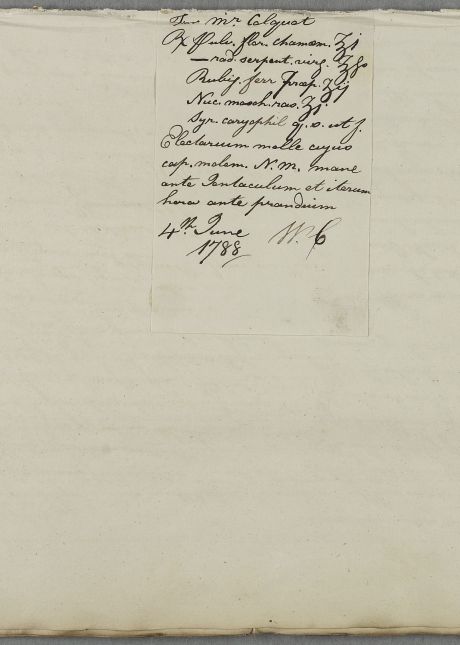 For Mr Colquot
℞ Pulv. flor. chamom. ʒj
— rad. serpent. virg. ʒſs
Rubig. ferr præp. ʒij
Nuc. mosch. ras. ʒj
Syr. caryophil q. s. ut f.
Electarium molle cujus
cap. molem. N. M. mane
ante Jentaculum et iterum
hora ante prandium
4th June W. C
1788